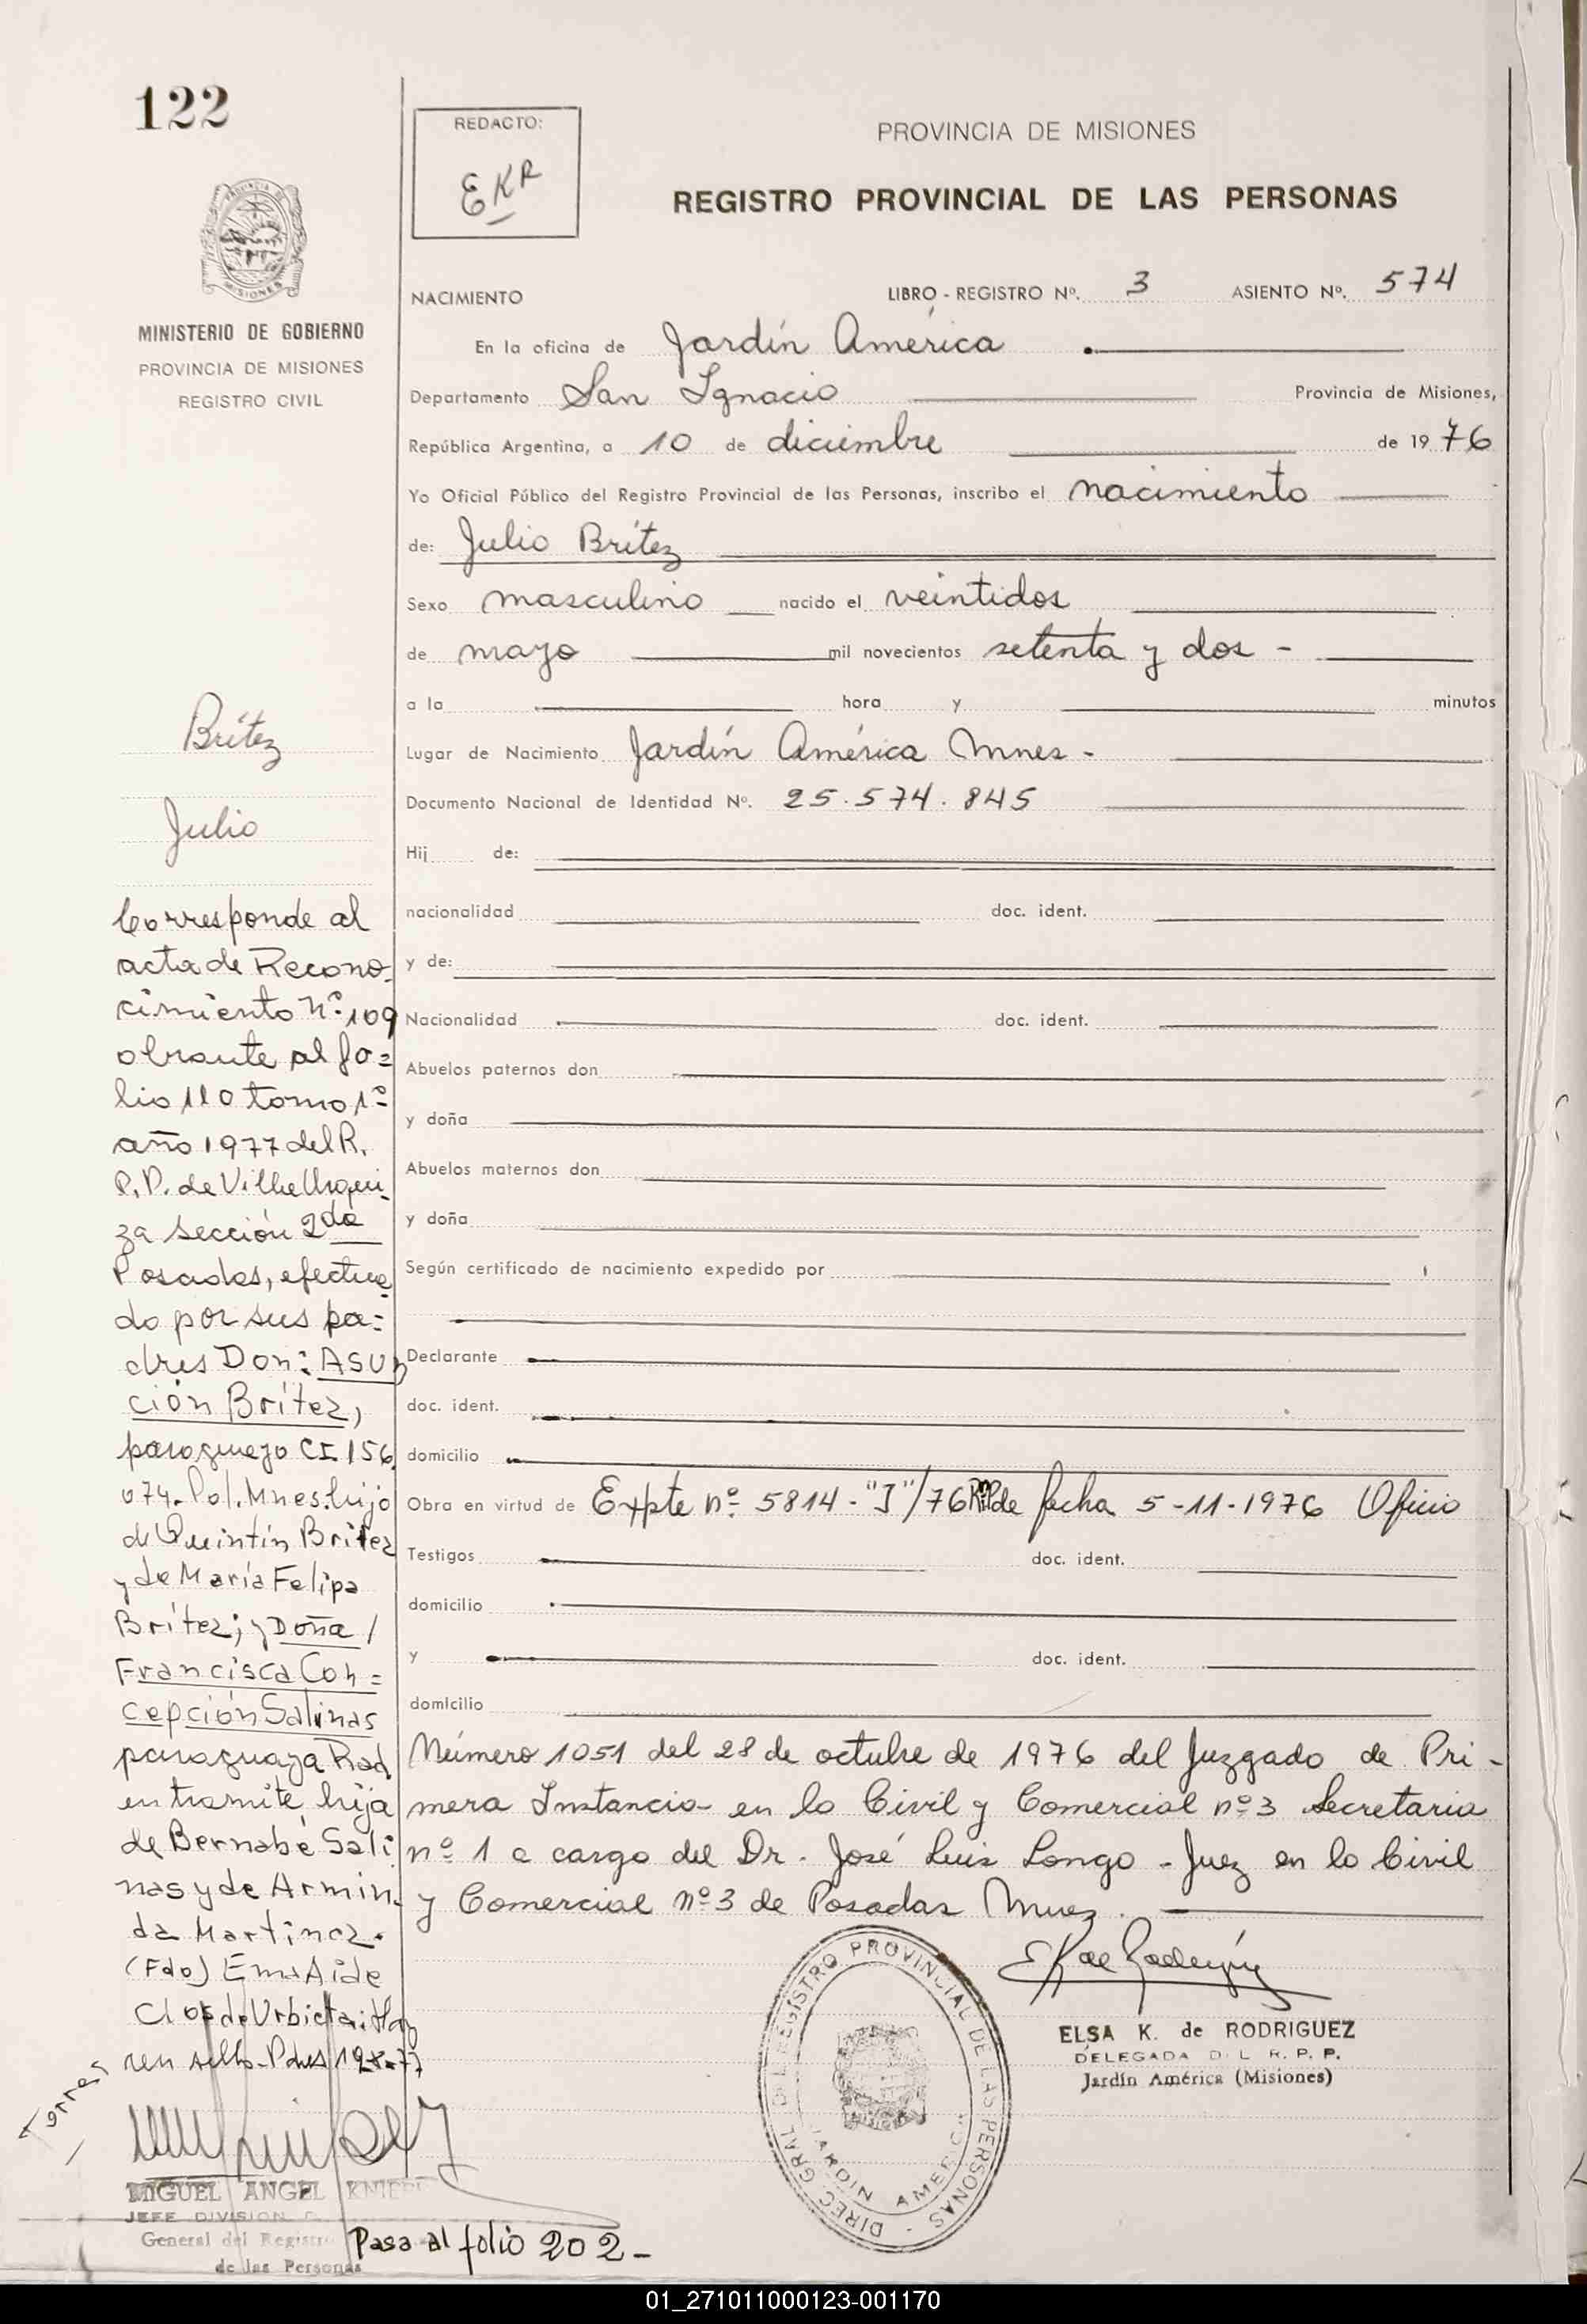 122
REDACTO:
EKR
PROVINCIA DE MISIONES
REGISTRO PROVINCIAL DE LAS PERSONAS
MISIONES
MINISTERIO DE GOBIERNO
PROVINCIA DE MISIONES
REGISTRO CIVIL
NACIMIENTO LIBRO - REGISTRO Nº. 3 ASIENTO Nº. 574
En la oficina de Jardín América
Departamento San Ignacio Provincia de Misiones,
República Argentina, a 10 de diciembre de 1976
Yo Oficial Público del Registro Provincial de las Personas, inscribo el nacimiento
de: Julio Brítez
Sexo masculino nacido el veintidos
de mayo mil novecientos setenta y dos -
a la hora y minutos
Lugar de Nacimiento Jardín América Mnes -
Documento Nacional de Identidad Nº. 25.574.845
Hij de:
nacionalidad doc. ident.
y de:
Nacionalidad doc. ident.
Abuelos paternos don
y doña
Abuelos maternos don
y doña
Según certificado de nacimiento expedido por
Declarante
doc. ident.
domicilio
Obra en virtud de Expte nº 5814 - "J"/76 de fecha 5-11-1976 Oficio
Testigos doc. ident.
domicilio
y doc. ident.
domicilio
Número 1051 del 28 de octubre de 1976 del Juzgado de Pri-
mera Instancia en lo Civil y Comercial nº 3 Secretaria
nº 1 a cargo del Dr. José Luis Longo - Juez en lo Civil
y Comercial nº 3 de Posadas Mnes.
Brítez
Julio
Corresponde al
acta de Recono-
cimiento nº 109
obrante al fo=
lio 110 tomo 1º
año 1977 del R.
P.P. de Villa Urqui-
za sección 2da
Posadas, efectua-
do por sus pa=
dres Don: ASUN
ción Brítez,
paraguayo CI. 156.
074. Pol. Mnes. hijo
de Quintín Britez
y de María Felipa
Brítez; y Doña /
Francisca Con=
cepción Salinas
paraguaya Rad.
en tramite hija
de Bernabé Sali
nas y de Armin-
da Martínez.
(Fdo) Ema Aide
Clos de Urbieta
Torres
MIGUEL ANGEL
JEFE DIVISION
General del Registro
de las Personas
Pasa al folio 202-
DIREC. GRAL. DEL REGISTRO PROVINCIAL DE LAS PERSONAS -
JARDIN AMERICA
ELSA K. de RODRIGUEZ
DELEGADA D L R. P. P.
Jardín América (Misiones)
01_271011000123-001170